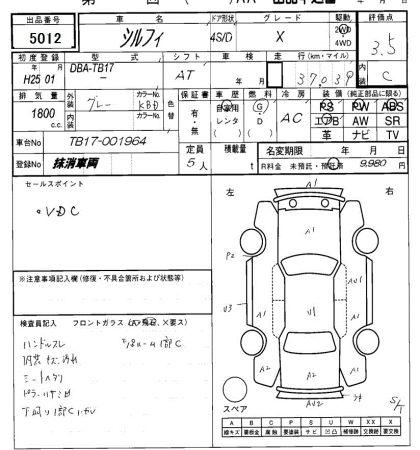 出品番号 車名 ドア形状 グレード 駆動 評価点
5012 シルフィ 4S/D X 2WD 4WD 3.5
初度登録 型式 シフト 車検 走行(km・マイル) 内装
年 月 DBA-TB17 AT 年 月 37,039 C
H25 01
排気量 外装 カラーNo. 色替 保証書 車歴 燃料 冷房 装備(純正部品に限る)
1800 c.c. グレー KBD 有・無 自家用 G AC PS PW ABS
内装 カラーNo. レンタ D エアB AW SR
車台No TB17-001964 革 ナビ TV
登録No 抹消車両 定員 5人 積載量 t 名変期限 年 月 日
R料金 未預託・預託済 9,980 円
セールスポイント 左 右
。VDC
A1
A1
P2
AU1
U3 A1 U1 A1
※注意事項記入欄(修復・不具合箇所および状態等)
検査員記入 フロントガラス
ハンドルスレ
内装キズ汚れ
シートヘタリ
A2 A2
AU2
スペア S/T
A B C P S U W X XX
線キズ 要板金 腐蝕 要塗装 サビ 凹凸 補修跡 交換跡 要交換